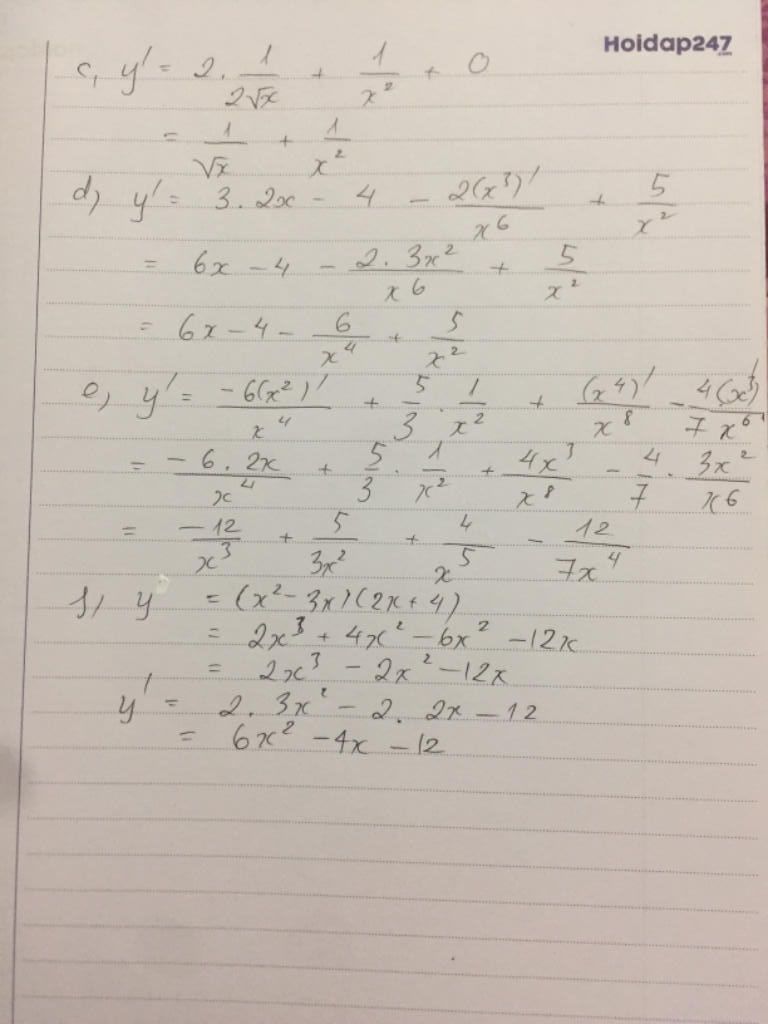 Hoidap247
.com
c, y' = 2. 1/(2√x) + 1/x² + 0
= 1/√x + 1/x²
d) y' = 3.2x - 4 - 2(x³)'/x⁶ + 5/x²
= 6x - 4 - 2.3x²/x⁶ + 5/x²
= 6x - 4 - 6/x⁴ + 5/x²
e) y' = -6(x²)'/x⁴ + 5/3 . 1/x² + (x⁴)'/x⁸ - 4(x³)'/7x⁶
= -6.2x/x⁴ + 5/3 . 1/x² + 4x³/x⁸ - 4/7 . 3x²/x⁶
= -12/x³ + 5/3x² + 4/x⁵ - 12/7x⁴
f) y = (x² - 3x)(2x + 4)
= 2x³ + 4x² - 6x² - 12x
= 2x³ - 2x² - 12x
y' = 2.3x² - 2.2x - 12
= 6x² - 4x - 12